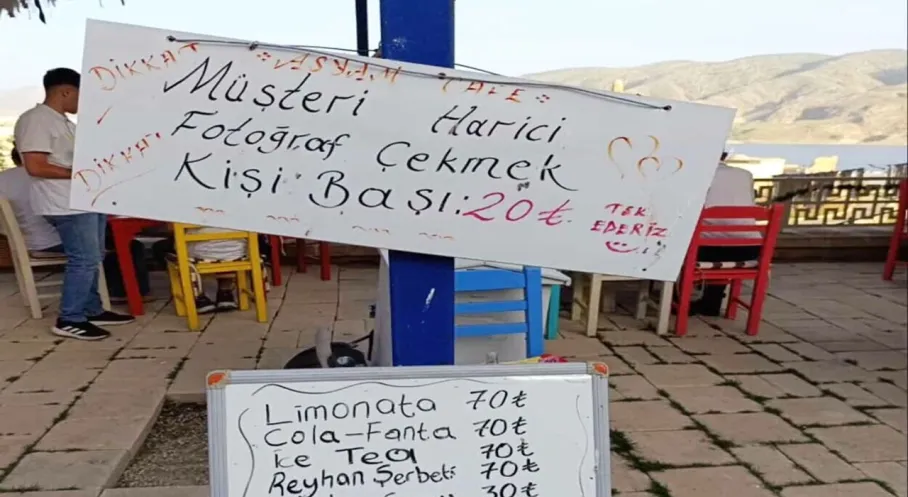 DİKKAT
ASYAM CAFE
Müşteri Harici
Fotoğraf Çekmek
Kişi Başı: 20 ₺.
DİKKAT
TŞK EDERİZ
Limonata 70 ₺
Cola-Fanta 70 ₺
İce Tea 70 ₺
Reyhan Şerbeti 70 ₺
30 ₺